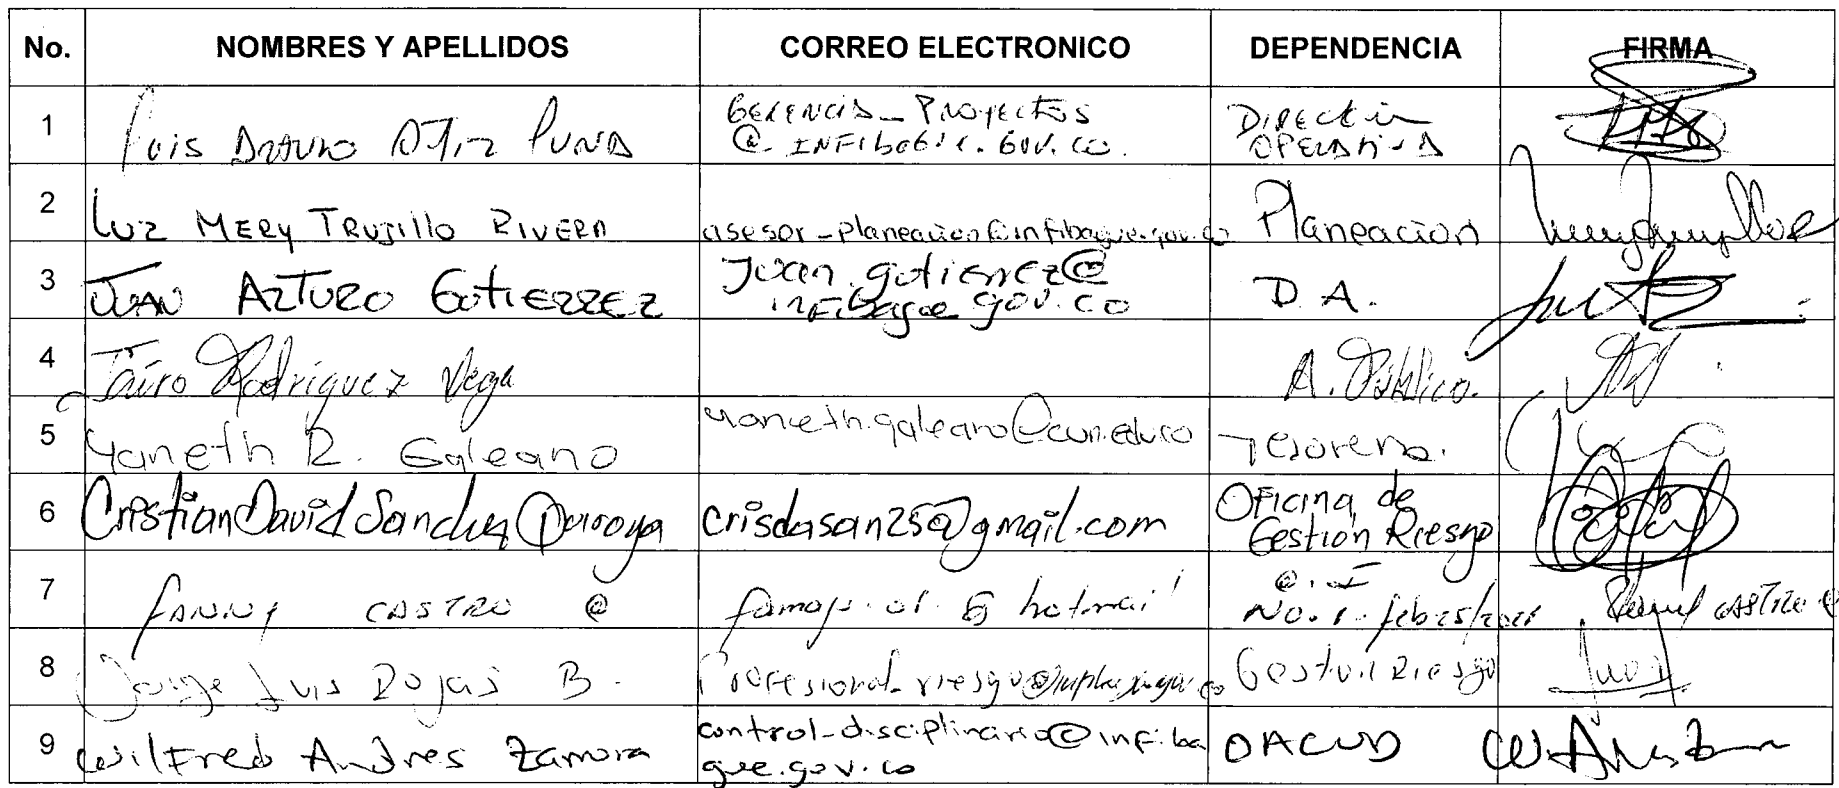 No. NOMBRES Y APELLIDOS CORREO ELECTRONICO DEPENDENCIA FIRMA
1 Luis Arturo Ortiz Luna Gerencia_Proyectos Dirección
@infibague.gov.co. Operativa
2 Luz Mery Trujillo Rivera asesor_planeacion@infibague.gov.co Planeación
3 Juan Arturo Gutierrez Juan.gutierrez@ D.A.
infibague.gov.co
4 Jairo Rodriguez Vega A. Público.
5 Yaneth R. Galeano yaneth.galeano@cun.edu.co Tesoreria.
6 Cristian David Sanchez crisdasan25@gmail.com Oficina de
Gestión Riesgo
7 Fanny Castro @ hotmail
No. 1. feb 25/ Castro
8 Jorge Luis Rojas B. Profesional_riesgo@ Gestión Riesgo
9 Wilfred Andres Zamora control_disciplinario@infiba OACUD
gue.gov.co